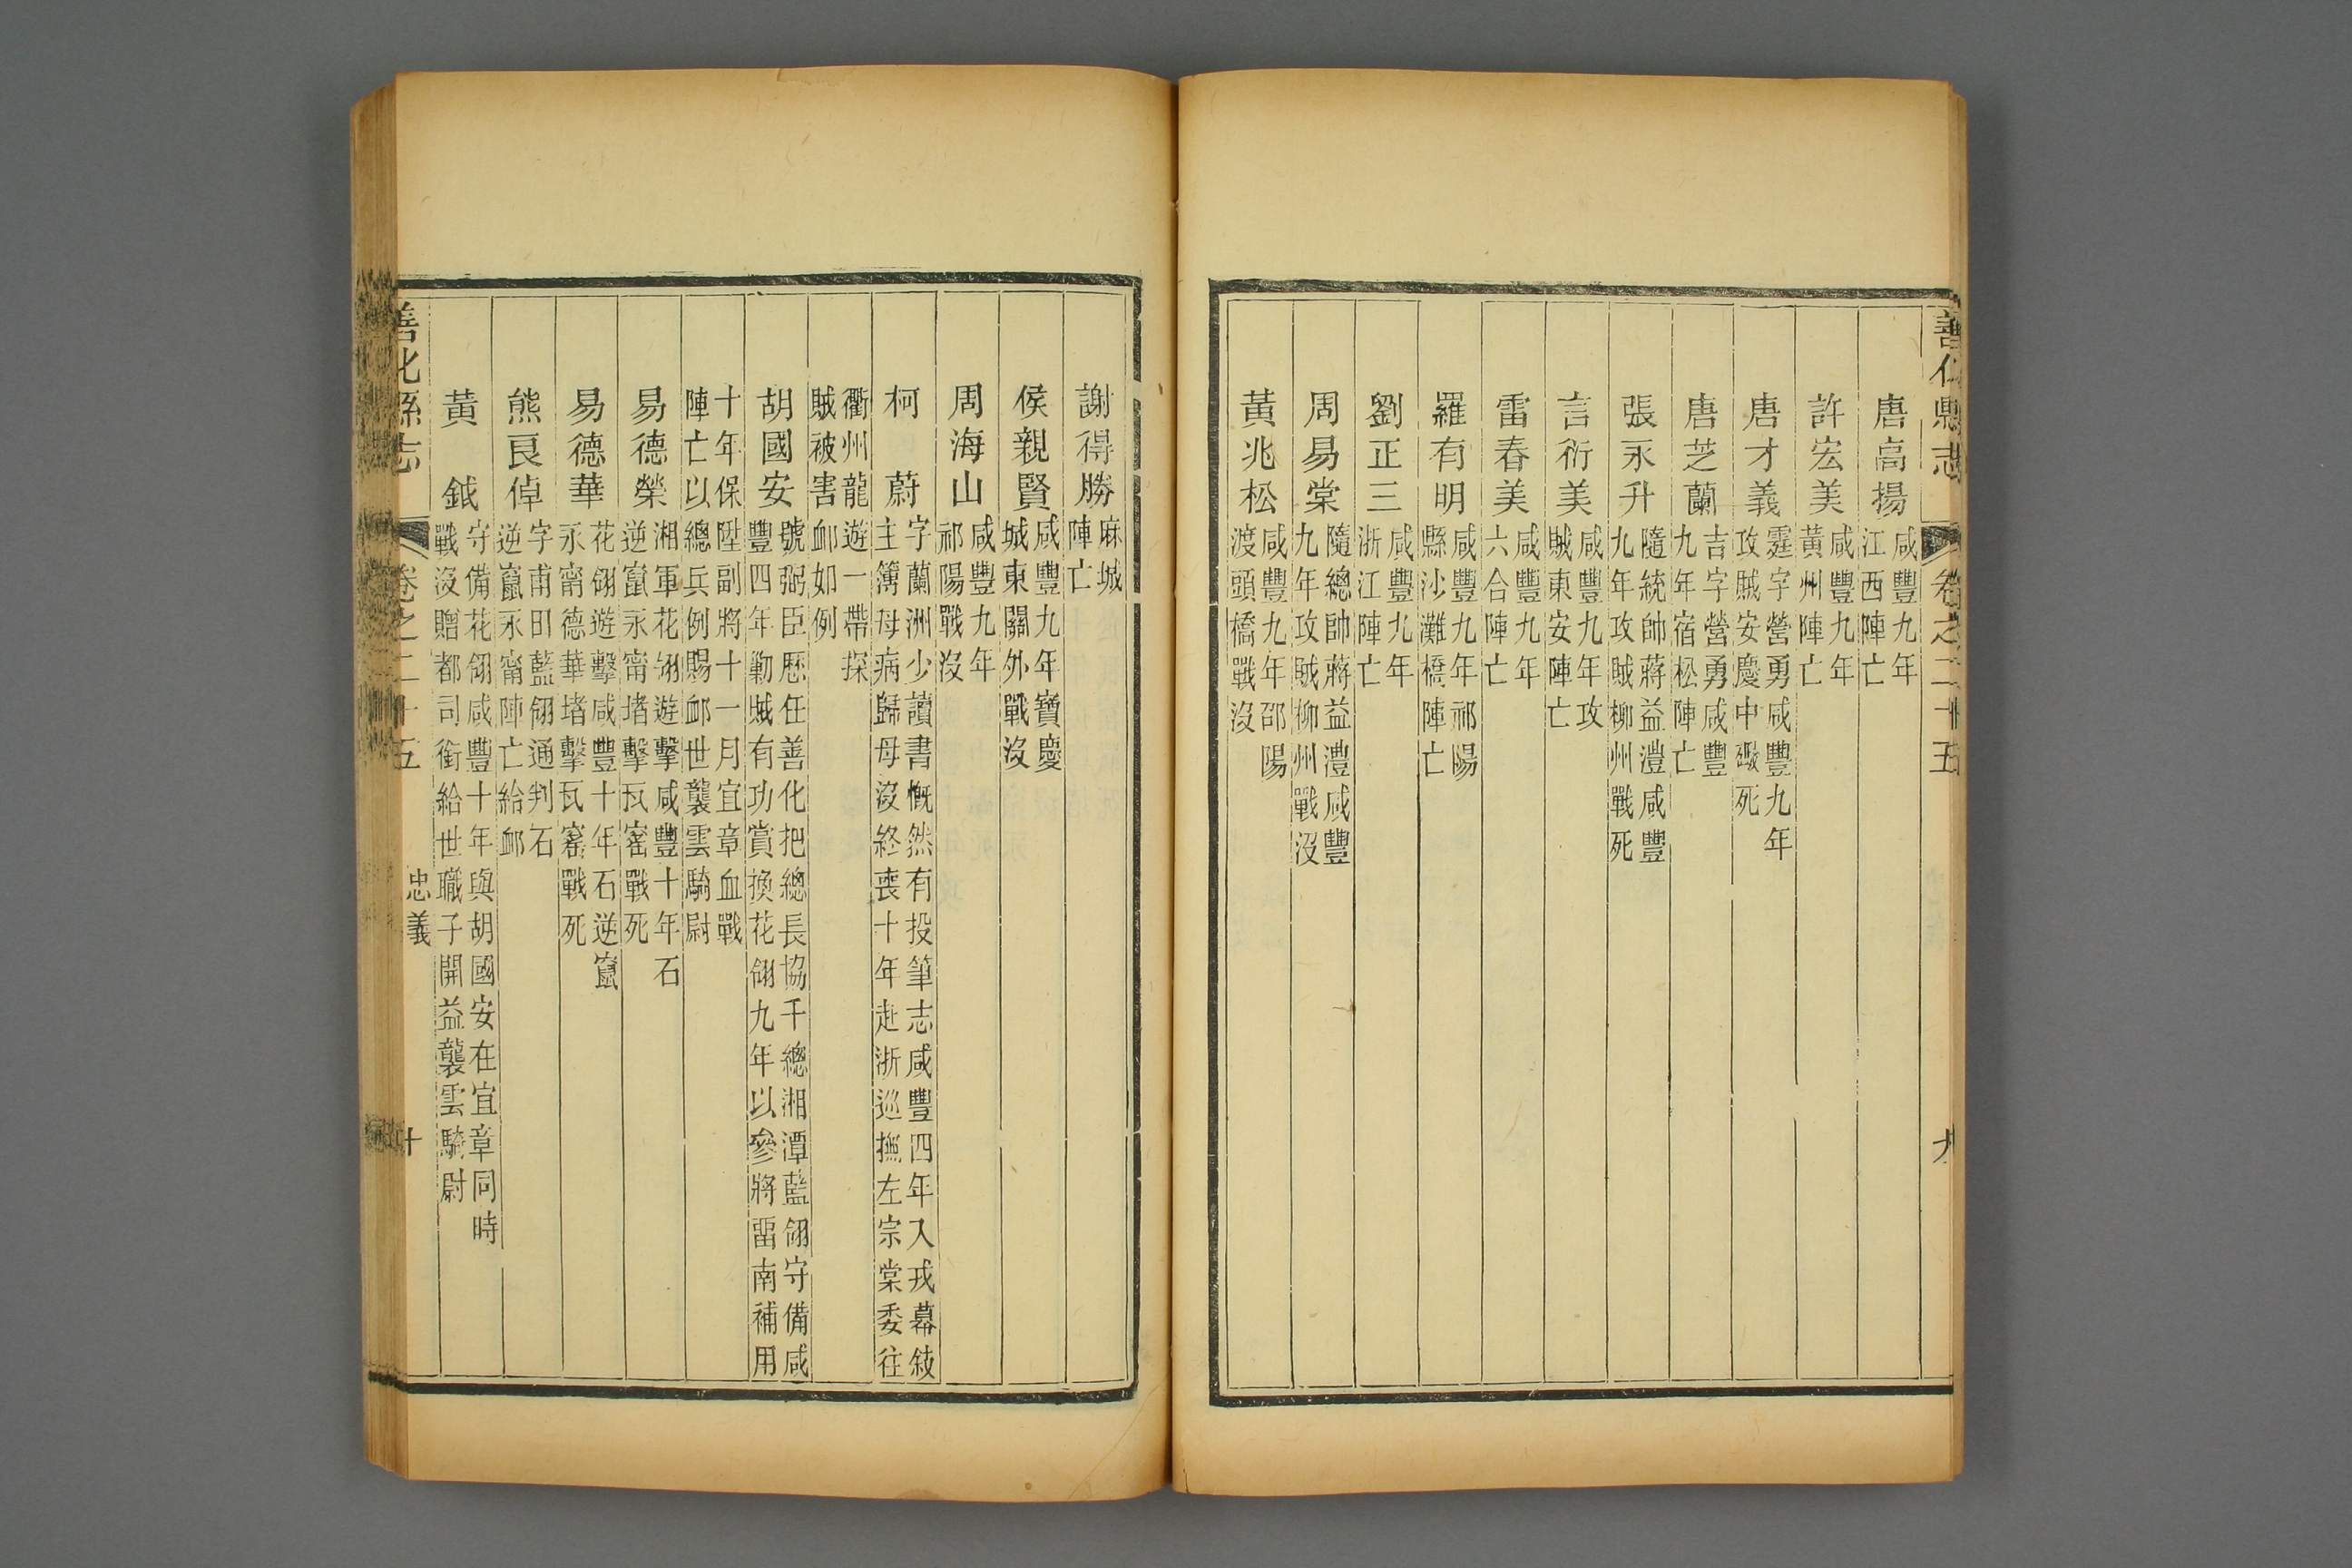 善化縣志 卷之二十五 九
唐高揚 咸豐九年江西陣亡
許宏美 咸豐九年黃州陣亡
唐才義 霆字營勇咸豐九年攻賊安慶中礮死
唐芝蘭 吉字營勇咸豐九年宿松陣亡
張永升 隨統帥蔣益灃咸豐九年攻賊柳州戰死
言衍美 咸豐九年攻賊東安陣亡
雷春美 咸豐九年六合陣亡
羅有明 咸豐九年祁陽縣沙灘橋陣亡
劉正三 咸豐九年浙江陣亡
周易棠 隨總帥蔣益灃咸豐九年攻賊柳州戰沒
黃兆松 咸豐九年邵陽渡頭橋戰沒
謝得勝 麻城陣亡
侯親賢 咸豐九年寶慶城東關外戰沒
周海山 咸豐九年祁陽戰沒
柯蔚 字蘭洲少讀書慨然有投筆志咸豐四年入戎幕敍主簿母病歸母沒終喪十年赴浙巡撫左宗棠委往
衢州龍遊一帶探賊被害卹如例
胡國安 號弼臣歷任善化把總長協千總湘潭藍翎守備咸豐四年勦賊有功賞換花翎九年以參將畱南補用
十年保陞副將十一月宜章血戰陣亡以總兵例賜卹世襲雲騎尉
易德榮 湘軍花翎遊擊咸豐十年石逆竄永甯堵擊瓦窰戰死
易德華 花翎遊擊咸豐十年石逆竄永甯德華堵擊瓦窰戰死
熊良倬 字甫田藍翎通判石逆竄永甯陣亡給卹
黃鉞 守備花翎咸豐十年與胡國安在宜章同時戰沒贈都司銜給世職子開益襲雲騎尉
善化縣志 卷之二十五 忠義 十